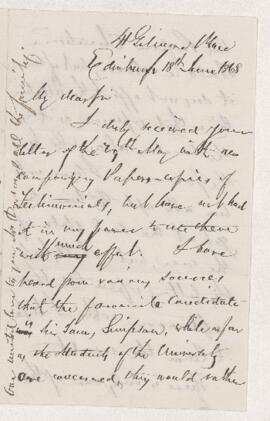 4 Gilmore Place
Edinburgh 18th June 1868
My dear Sir
I duly received your
letter of the 29th May with ac
companying Papers - copies of
Testimonials, but have not had
it in my power to use them
with much effect. I have
heard from various sources
that the favourite Candidate
is Sir James Simpson, while as far
as the Students of the University
are concerned, they would rather
our united love to you both and all the family.